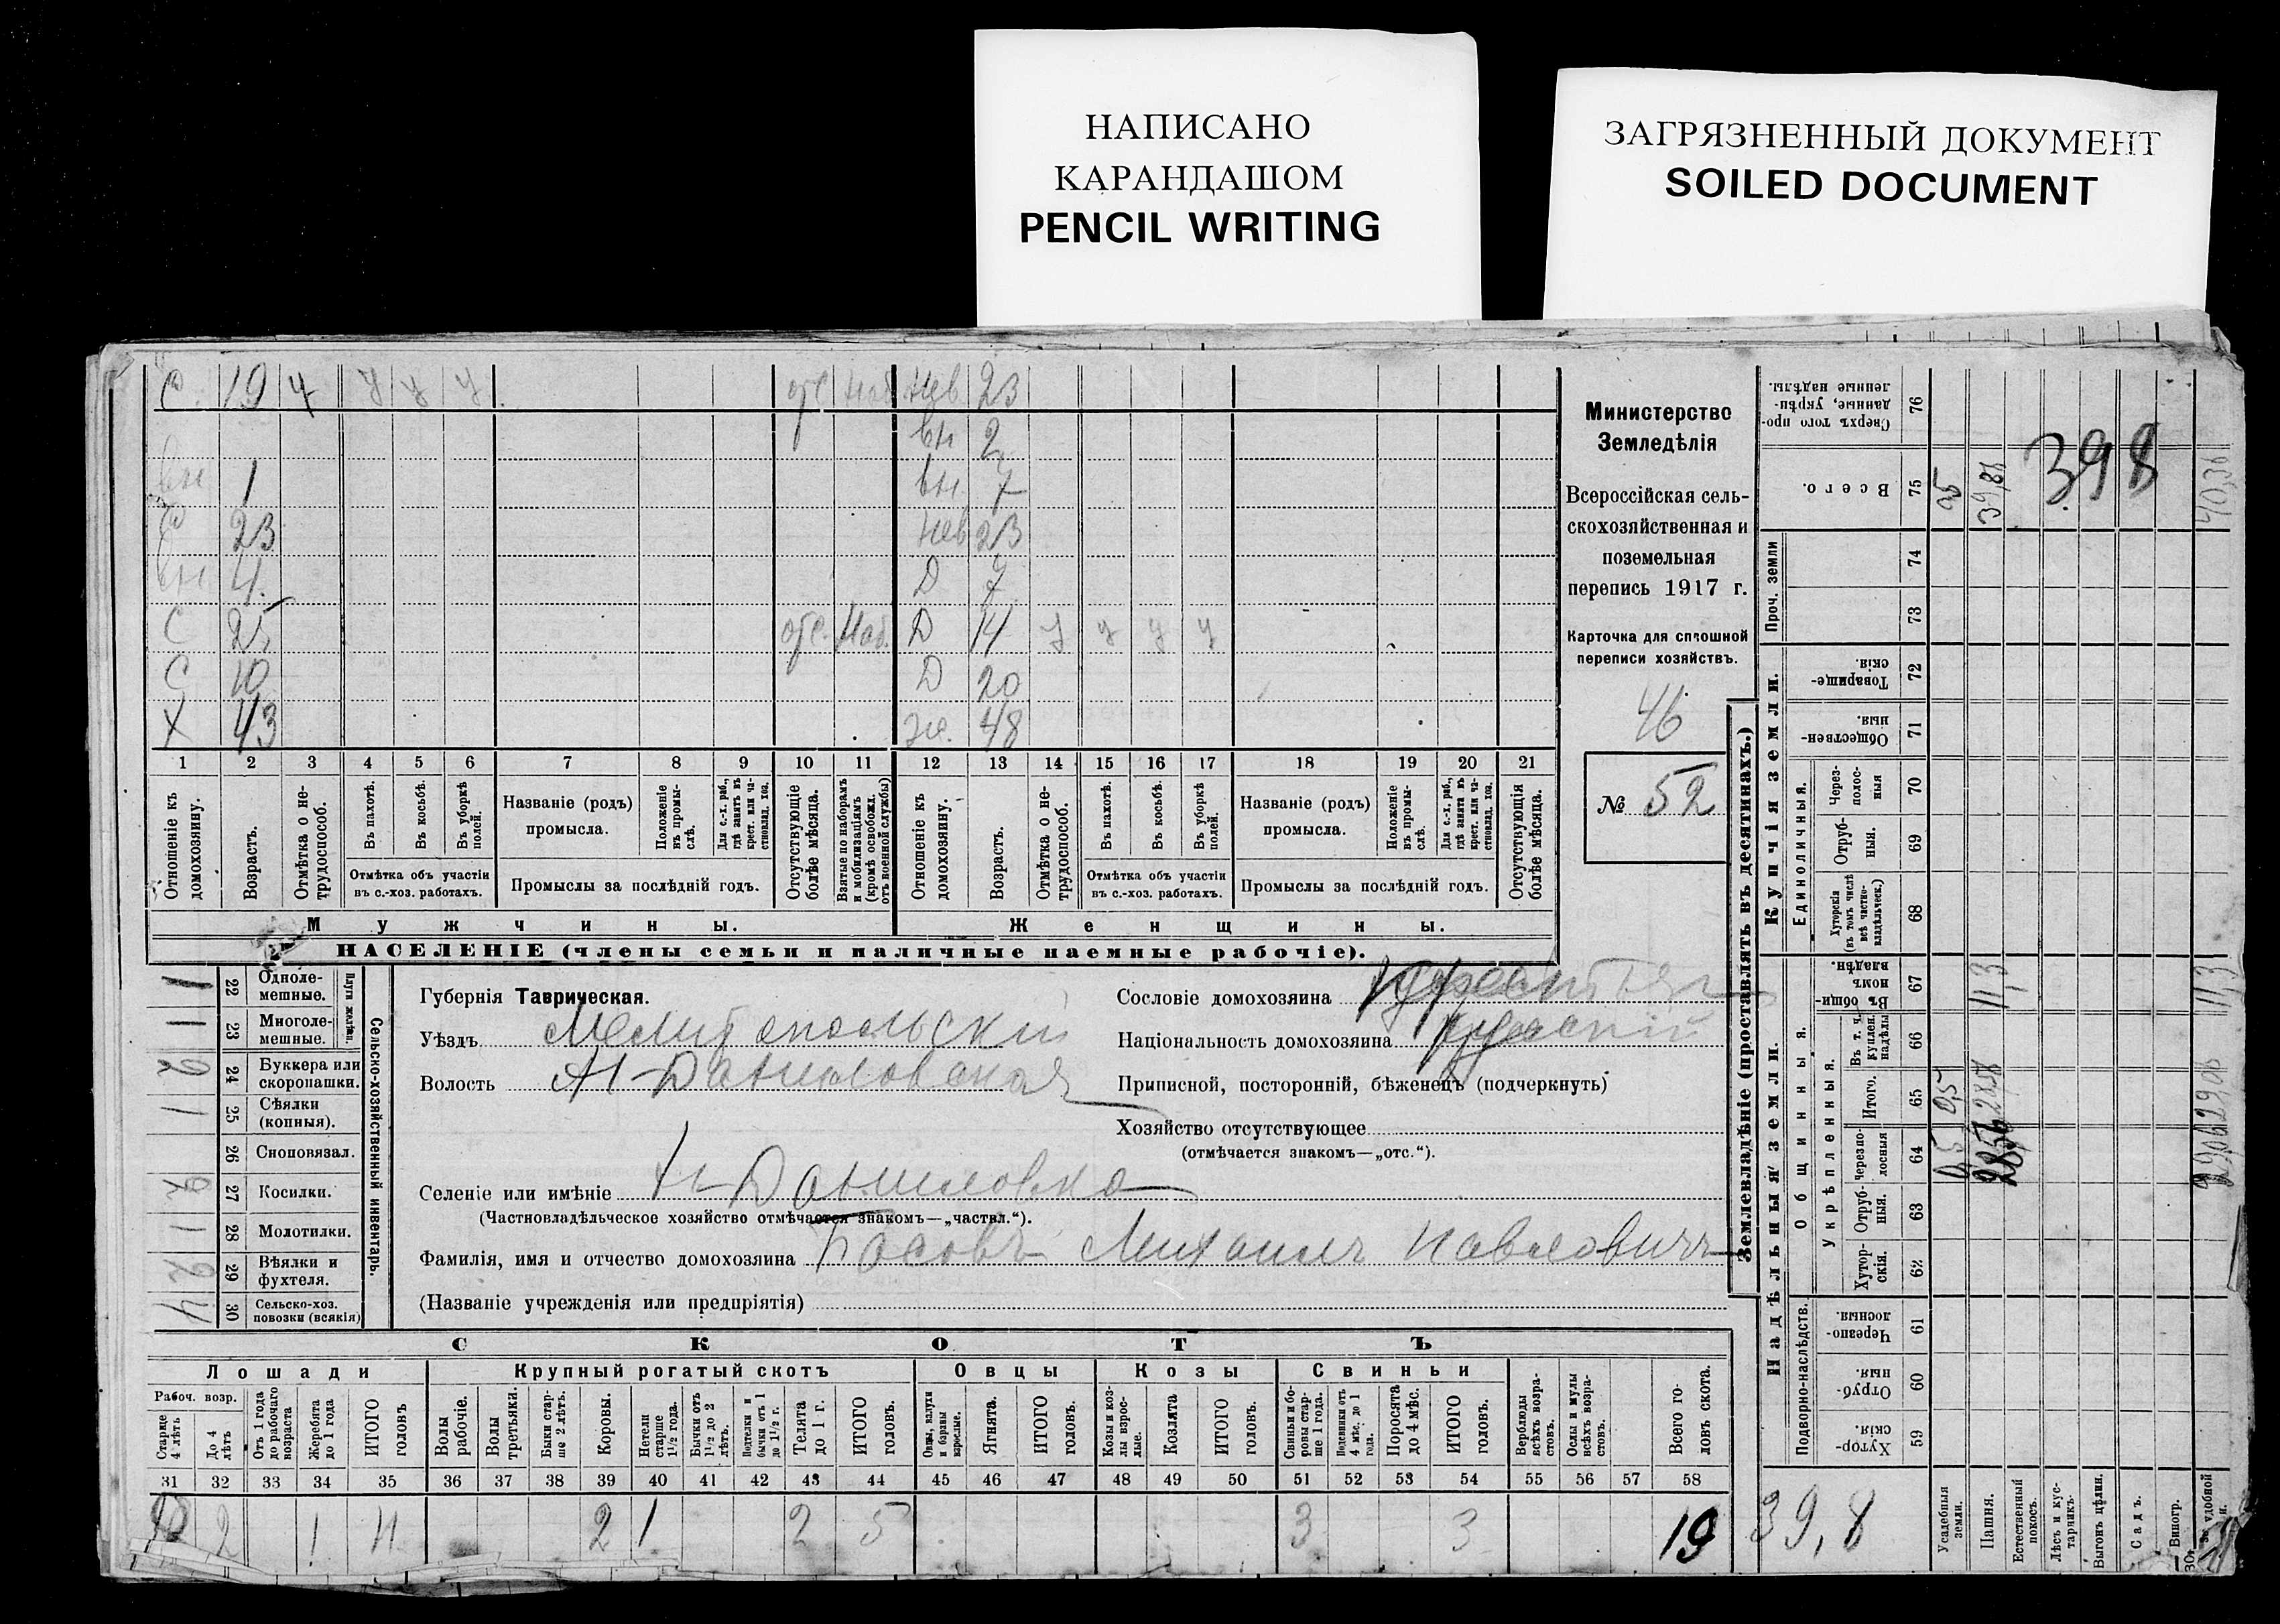 НАПИСАНО
КАРАНДАШОМ
PENCIL WRITING
ЗАГРЯЗНЕННЫЙ ДОКУМЕНТ
SOILED DOCUMENT
С 19 отс Наб Нев 23
вн 2
вн 1 вн 7
С 23 Нев 23
вн 4 Д 7
С 25 отс. Наб. Д 14 у у у у
С 10 Д 20
Х 43 же. 48
1 2 3 4 5 6 7 8 9 10 11 12 13 14 15 16 17 18 19 20 21
Отношеніе къ домохозяину.
Возрастъ.
Отмѣтка о нетрудоспособ.
Въ пахотѣ.
Въ косьбѣ.
Въ уборкѣ полей.
Отмѣтка объ участіи въ с.-хоз. работахъ.
Названіе (родъ) промысла.
Положеніе въ промыслѣ.
Для с.-х. раб., гдѣ занятъ въ крест. или частновлад. хоз.
Промыслы за послѣдній годъ.
Отсутствующіе болѣе мѣсяца.
Взятые по наборамъ и мобилизаціямъ (кромѣ освобожд. отъ военной службы)
Отношеніе къ домохозяину.
Возрастъ.
Отмѣтка о нетрудоспособ.
Въ пахотѣ.
Въ косьбѣ.
Въ уборкѣ полей.
Отмѣтка объ участіи въ с.-хоз. работахъ.
Названіе (родъ) промысла.
Положеніе въ промыслѣ.
Для с.-х. раб., гдѣ занята въ крест. или частновлад. хоз.
Промыслы за послѣдній годъ.
Отсутствующія болѣе мѣсяца.
Мужчины.
Женщины.
НАСЕЛЕНІЕ (члены семьи и наличные наемные рабочіе).
Министерство
Земледѣлія
Всероссійская сель-
скохозяйственная и
поземельная
перепись 1917 г.
Карточка для сплошной
переписи хозяйствъ.
46
№ 52
1 22 Одноле-мешные.
1 23 Многоле-мешные.
Плуги желѣзн.
2 24 Буккера или скоропашки.
1 25 Сѣялки (конныя).
26 Сноповязал.
27 Косилки.
1 28 Молотилки.
2 29 Вѣялки и фухтеля.
4 30 Сельско-хоз. повозки (всякія)
Сельско-хозяйственный инвентарь.
Губернія Таврическая.
Уѣздъ Мелитопольскій
Волость Н-Даниловская
Селеніе или имѣніе Н-Даниловка
(Частновладѣльческое хозяйство отмѣчается знакомъ—„частвл.“).
Фамилія, имя и отчество домохозяина Басовъ Михаилъ Павловичъ
(Названіе учрежденія или предпріятія)
Сословіе домохозяина
Національность домохозяина русскій
Приписной, посторонній, бѣженецъ (подчеркнуть)
Хозяйство отсутствующее
(отмѣчается знакомъ—„отс.“).
СКОТЪ
Лошади
Крупный рогатый скотъ
Овцы
Козы
Свиньи
Рабоч. возр.
Старше 4 лѣтъ
До 4 лѣтъ
Отъ 1 года до рабочаго возраста
Жеребята до 1 года
ИТОГО головъ
Волы рабочіе.
Волы третьяки.
Быки старше 2 лѣтъ.
Коровы.
Нетели старше 1 1/2 года.
Бычки отъ 1 1/2 до 2 лѣтъ.
Подтелки и бычки отъ 1 до 1 1/2 г.
Телята до 1 г.
ИТОГО головъ.
Овцы, валухи и бараны взрослые.
Ягнята.
ИТОГО головъ.
Козы и козлы взрослые.
Козлята
ИТОГО головъ.
Свиньи и боровы старше 1 года.
Подсвинки отъ 4 мѣс. до 1 года.
Поросята до 4 мѣс.
ИТОГО головъ.
Верблюды всѣхъ возрастовъ.
Ослы и мулы всѣхъ возрастовъ.
Всего головъ скота.
31 32 33 34 35 36 37 38 39 40 41 42 43 44 45 46 47 48 49 50 51 52 53 54 55 56 57 58
2 1 11 2 1 2 5 3 3 19
39,8
Землевладѣніе (проставлять въ десятинахъ.)
Купчія земли.
Надѣльныя земли.
Проч. земли
Единоличныя.
Общинныя.
Укрѣпленныя.
Подворно-наслѣдств.
Сверхъ того проданные, укрѣпленные надѣлы. 76
Всего. 75 0,5 39,88 398 40,38
74
73
Товарищескія. 72
Общественныя. 71
Черезполосныя 70
Отрубныя. 69
Хуторскія (въ томъ числѣ всѣ частновладѣльческ.) 68
Въ общинномъ владѣн. 67 11,3 11,3
Въ т. ч. куплен. надѣлы 66
Итого. 65 0,5
Черезполосныя 64 0,5
Отрубныя. 63
Хуторскія. 62
Черезполосныя 61
Отрубныя 60
Хуторскія 59
Усадебныя земли.
Пашня.
Естественный покосъ.
Лѣсъ и кустарникъ.
Выгонъ цѣлин.
Садъ.
Виногр.